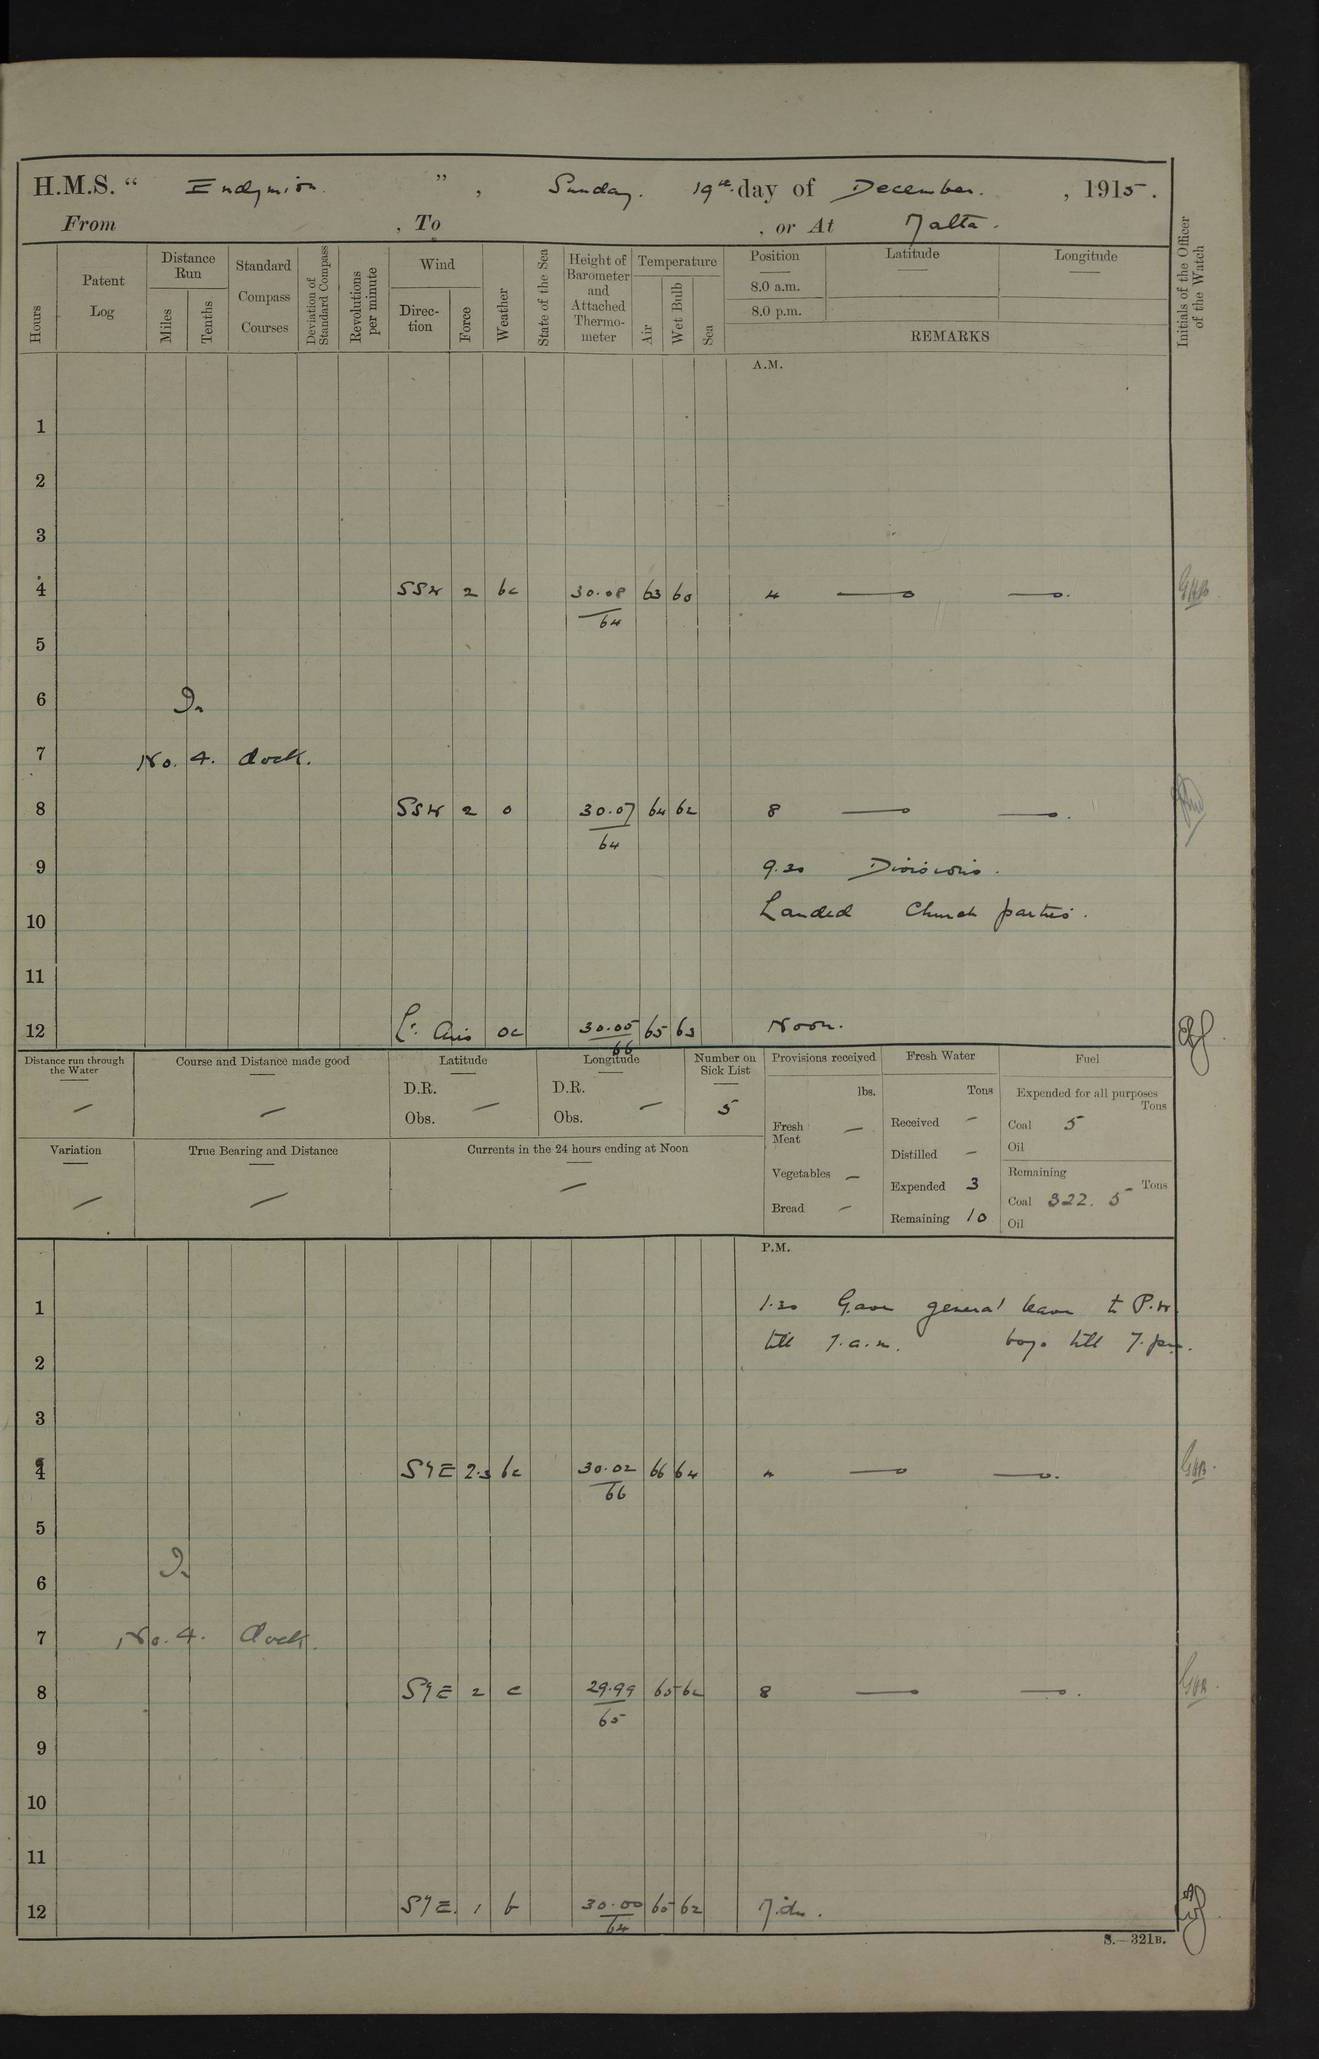 H.M.S. “ Endymion. ” , Sunday. 19th day of December. , 1915.
From , To , or At Malta.
Hours
Patent Log
Distance Run
Miles
Tenths
Standard Compass Courses
Deviation of Standard Compass
Revolutions per minute
Wind
Direction
Force
Weather
State of the Sea
Height of Barometer and Attached Thermometer
Temperature
Air
Wet Bulb
Sea
Position
8.0 a.m.
8.0 p.m.
Latitude
Longitude
REMARKS
Initials of the Officer of the Watch
A.M.
1
2
3
4 SSW 2 bc 30.08 63 60 4 GHB
64
5
6 In
7 No. 4. dock.
8 SSW 2 o 30.07 64 62 8
64
9 9.30 Divisions.
10 Landed Church parties.
11
12 Lt. Airs oc 30.05 65 63 Noon.
66
Distance run through the Water —
Course and Distance made good —
Latitude
D.R.
Obs. —
Longitude
D.R.
Obs. —
Number on Sick List
5
Provisions received
lbs.
Fresh Meat —
Vegetables —
Bread —
Fresh Water
Tons
Received —
Distilled —
Expended 3
Remaining 10
Fuel
Expended for all purposes
Tons
Coal 5
Oil
Remaining
Tons
Coal 322. 5
Oil
Variation —
True Bearing and Distance —
Currents in the 24 hours ending at Noon —
P.M.
1 1.30 Gave general leave to P.W.
till 7.a.m. boys till 7.pm.
2
3
4 S'E 2.3 bc 30.02 66 64 4 GHB.
66
5
6 In
7 No. 4. dock.
8 S'E 2 c 29.99 65 62 8 GHB.
65
9
10
11
12 S'E. 1 b 30.00 65 62 Mid.
64
S.—321B.